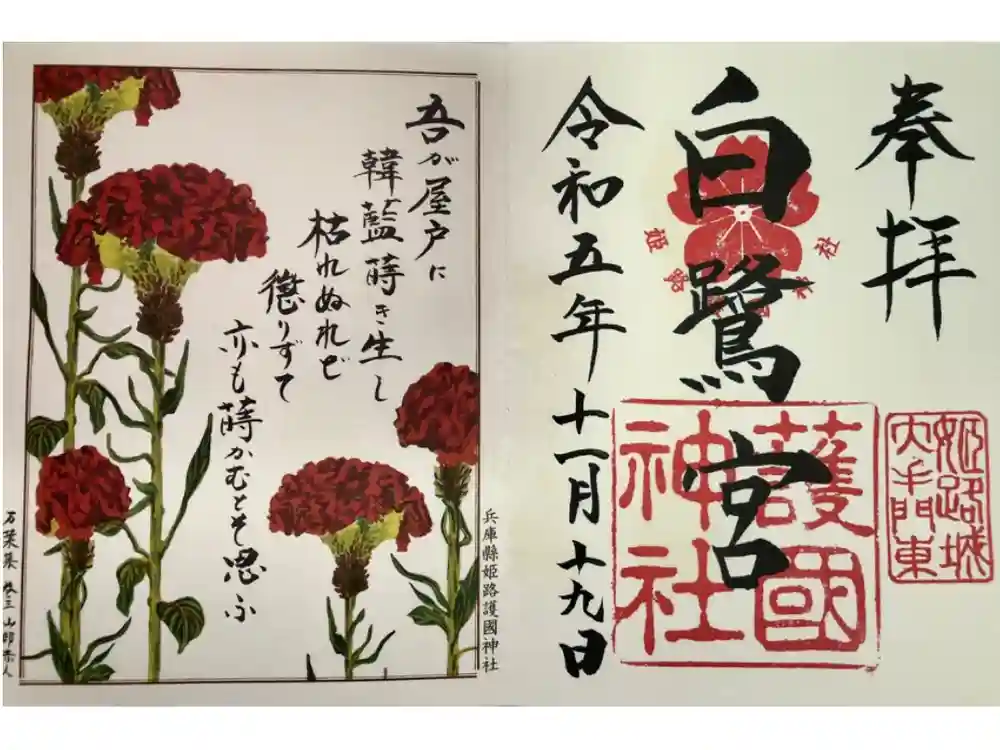 奉拝
白鷺宮
令和五年十一月十九日
姫路城
大手門東
護國
神社
姫路
神社
吾が屋戸に
韓藍蒔き生し
枯れぬれど
懲りずて
亦も蒔かむとそ思ふ
万葉集 巻三 山部赤人
兵庫縣姫路護國神社